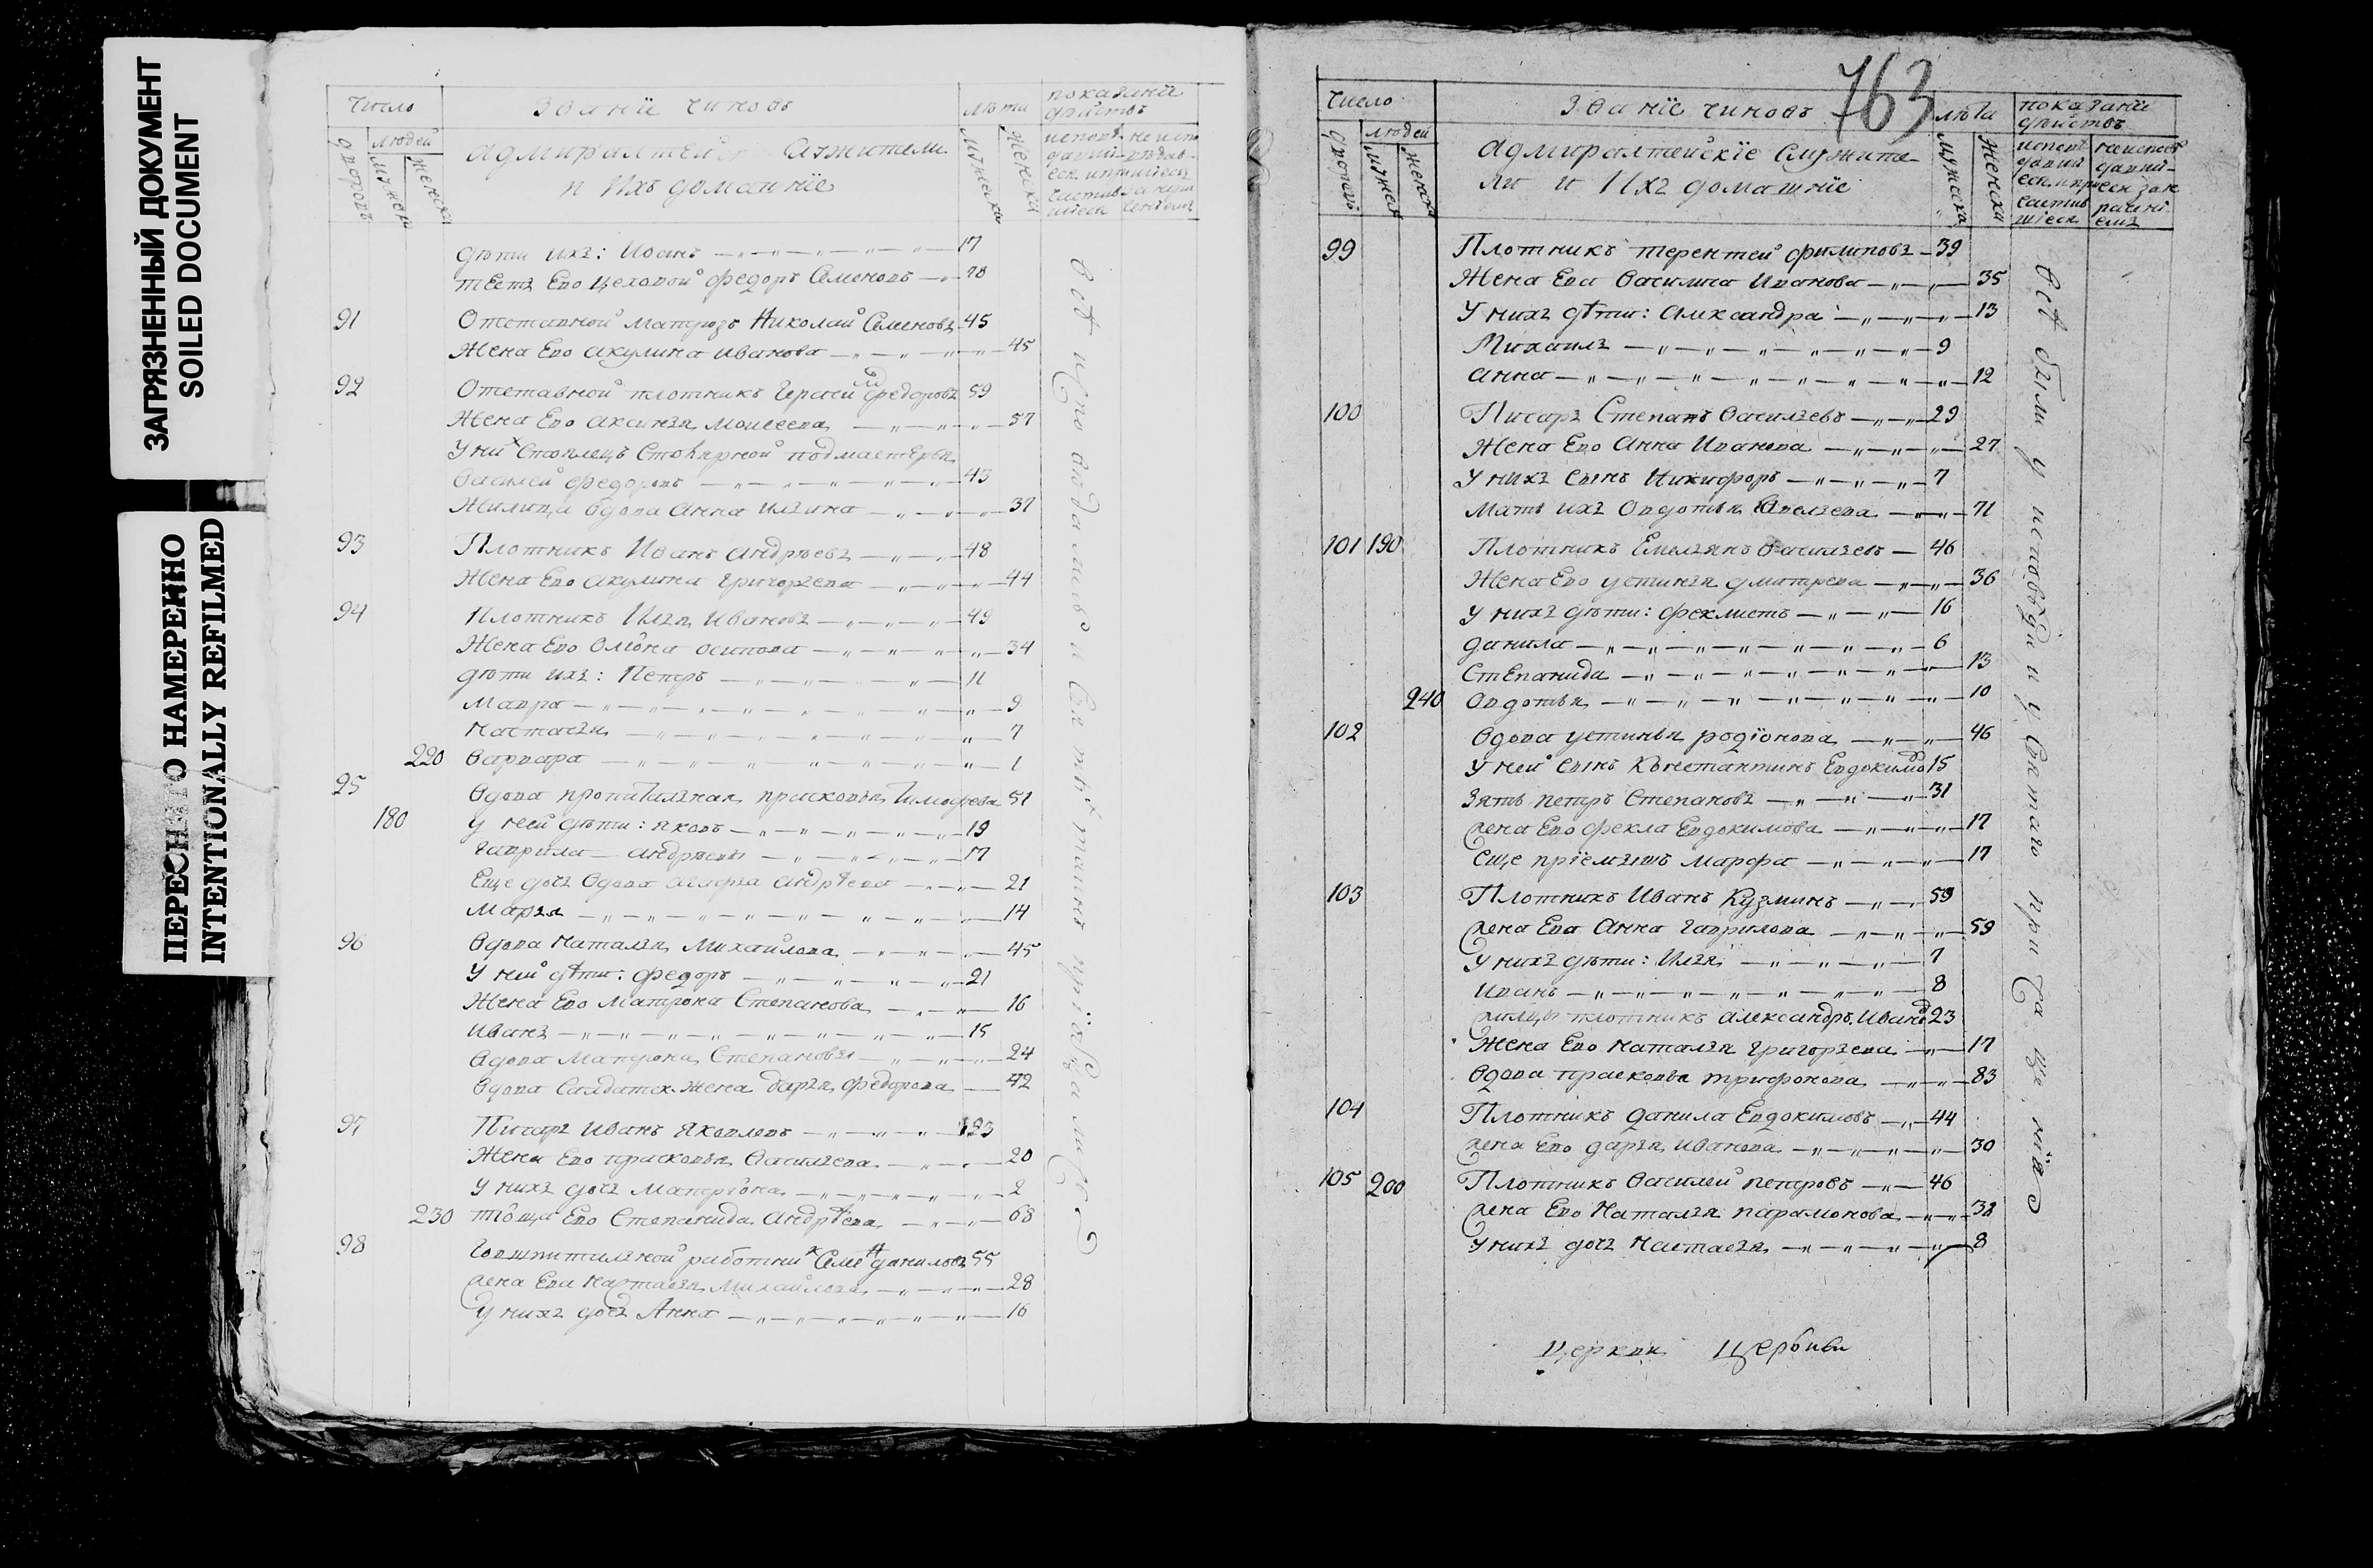 ЗАГРЯЗНЕННЫЙ ДОКУМЕНТ
SOILED DOCUMENT
ПЕРЕСНЯТО НАМЕРЕННО
INTENTIONALLY REFILMED
число
званїе чиновъ
лѣта
показанїе
дѣйствъ
дворовъ
людей
мужеска
женска
адмиралтейс служители
и ихъ домашнїе
мужеска
женска
дѣти ихъ: Иванъ 17
тесть Ево цеховой федоръ Семеновъ 70
91 Отставной матрозъ Николай Семеновъ 45
Жена Ево акулина иванова 45
92 Отставной плотникъ федоровъ 59
Жена Ево аксинья моисеева 57
У них столярной подмастерья
Василей федоровъ 43
Жилица вдова анна ильина 37
93 Плотникъ Иванъ андрѣевъ 48
Жена Ево акулина григорьева 44
94 Плотникъ Илья Ивановъ 49
Жена Ево осипова 34
дѣти ихъ: Петръ 11
мавра 9
настасья 7
220 варвара 1
95 вдова прасковья тимофеева 51
180 у ней дѣти: яковъ 19
гаврила андрѣевы 17
Еще дочь вдова агафья андрѣева 21
марья 14
96 вдова наталья михайлова 45
У ней дѣти: федоръ 21
Жена Ево матрона степанова 16
иванъ 15
вдова матрона степанова 24
вдова салдатск жена дарья федорова 42
97 Писарь иванъ яковлевъ 23
Жена Ево прасковья васильева 20
У нихъ дочь матрїона 2
230 тїоща Ево степанида андрѣева 68
98 Гошпитальной работни Семе данилов 55
жена Ево настасья михайлова 28
у нихъ дочь Анна 16
всѣ исповѣдались и святыхъ таинъ прїобщались
763
число
званїе чиновъ
лѣта
показанїе
дѣйствъ
дворовъ
людей
мужеск
женска
адмиралтейскїе служите-
ли и ихъ домашнїе
мужеска
женска
99 Плотникъ терентей филиповъ 39
Жена Ево василиса иванова 35
У нихъ дѣти: александра 13
Михаилъ 9
анна 12
100 Писарь Степанъ васильевъ 29
Жена Ево анна иванова 27
У нихъ сынъ Никифоръ 7
мать ихъ овдотья 71
101 190 Плотникъ Емельянъ васильевъ 46
Жена Ево устинья дмитрева 36
у нихъ дѣти: феклистъ 16
данила 6
Степанида 13
240 овдотья 10
102 вдова устинья родїонова 46
у ней сынъ Константинъ Евдокимов 15
зять петръ степановъ 31
жена Ево фекла Евдокимова 17
еще прїемышъ марфа 17
103 Плотникъ Иванъ Кузминъ 59
жена Ево анна гаврилова 59
У нихъ дѣти: Илья 7
иванъ 8
жилцы плотникъ александръ Иванов 23
Жена Ево наталья григорьева 17
вдова прасковья трифонова 83
104 Плотникъ данила Евдокимовъ 44
жена Ево дарья иванова 30
105 200 Плотникъ василей петровъ 46
жена Ево наталья парамонова 32
у нихъ дочь настасья 8
всѣ были у исповѣди и у святаго причащенїя
церкви церкви